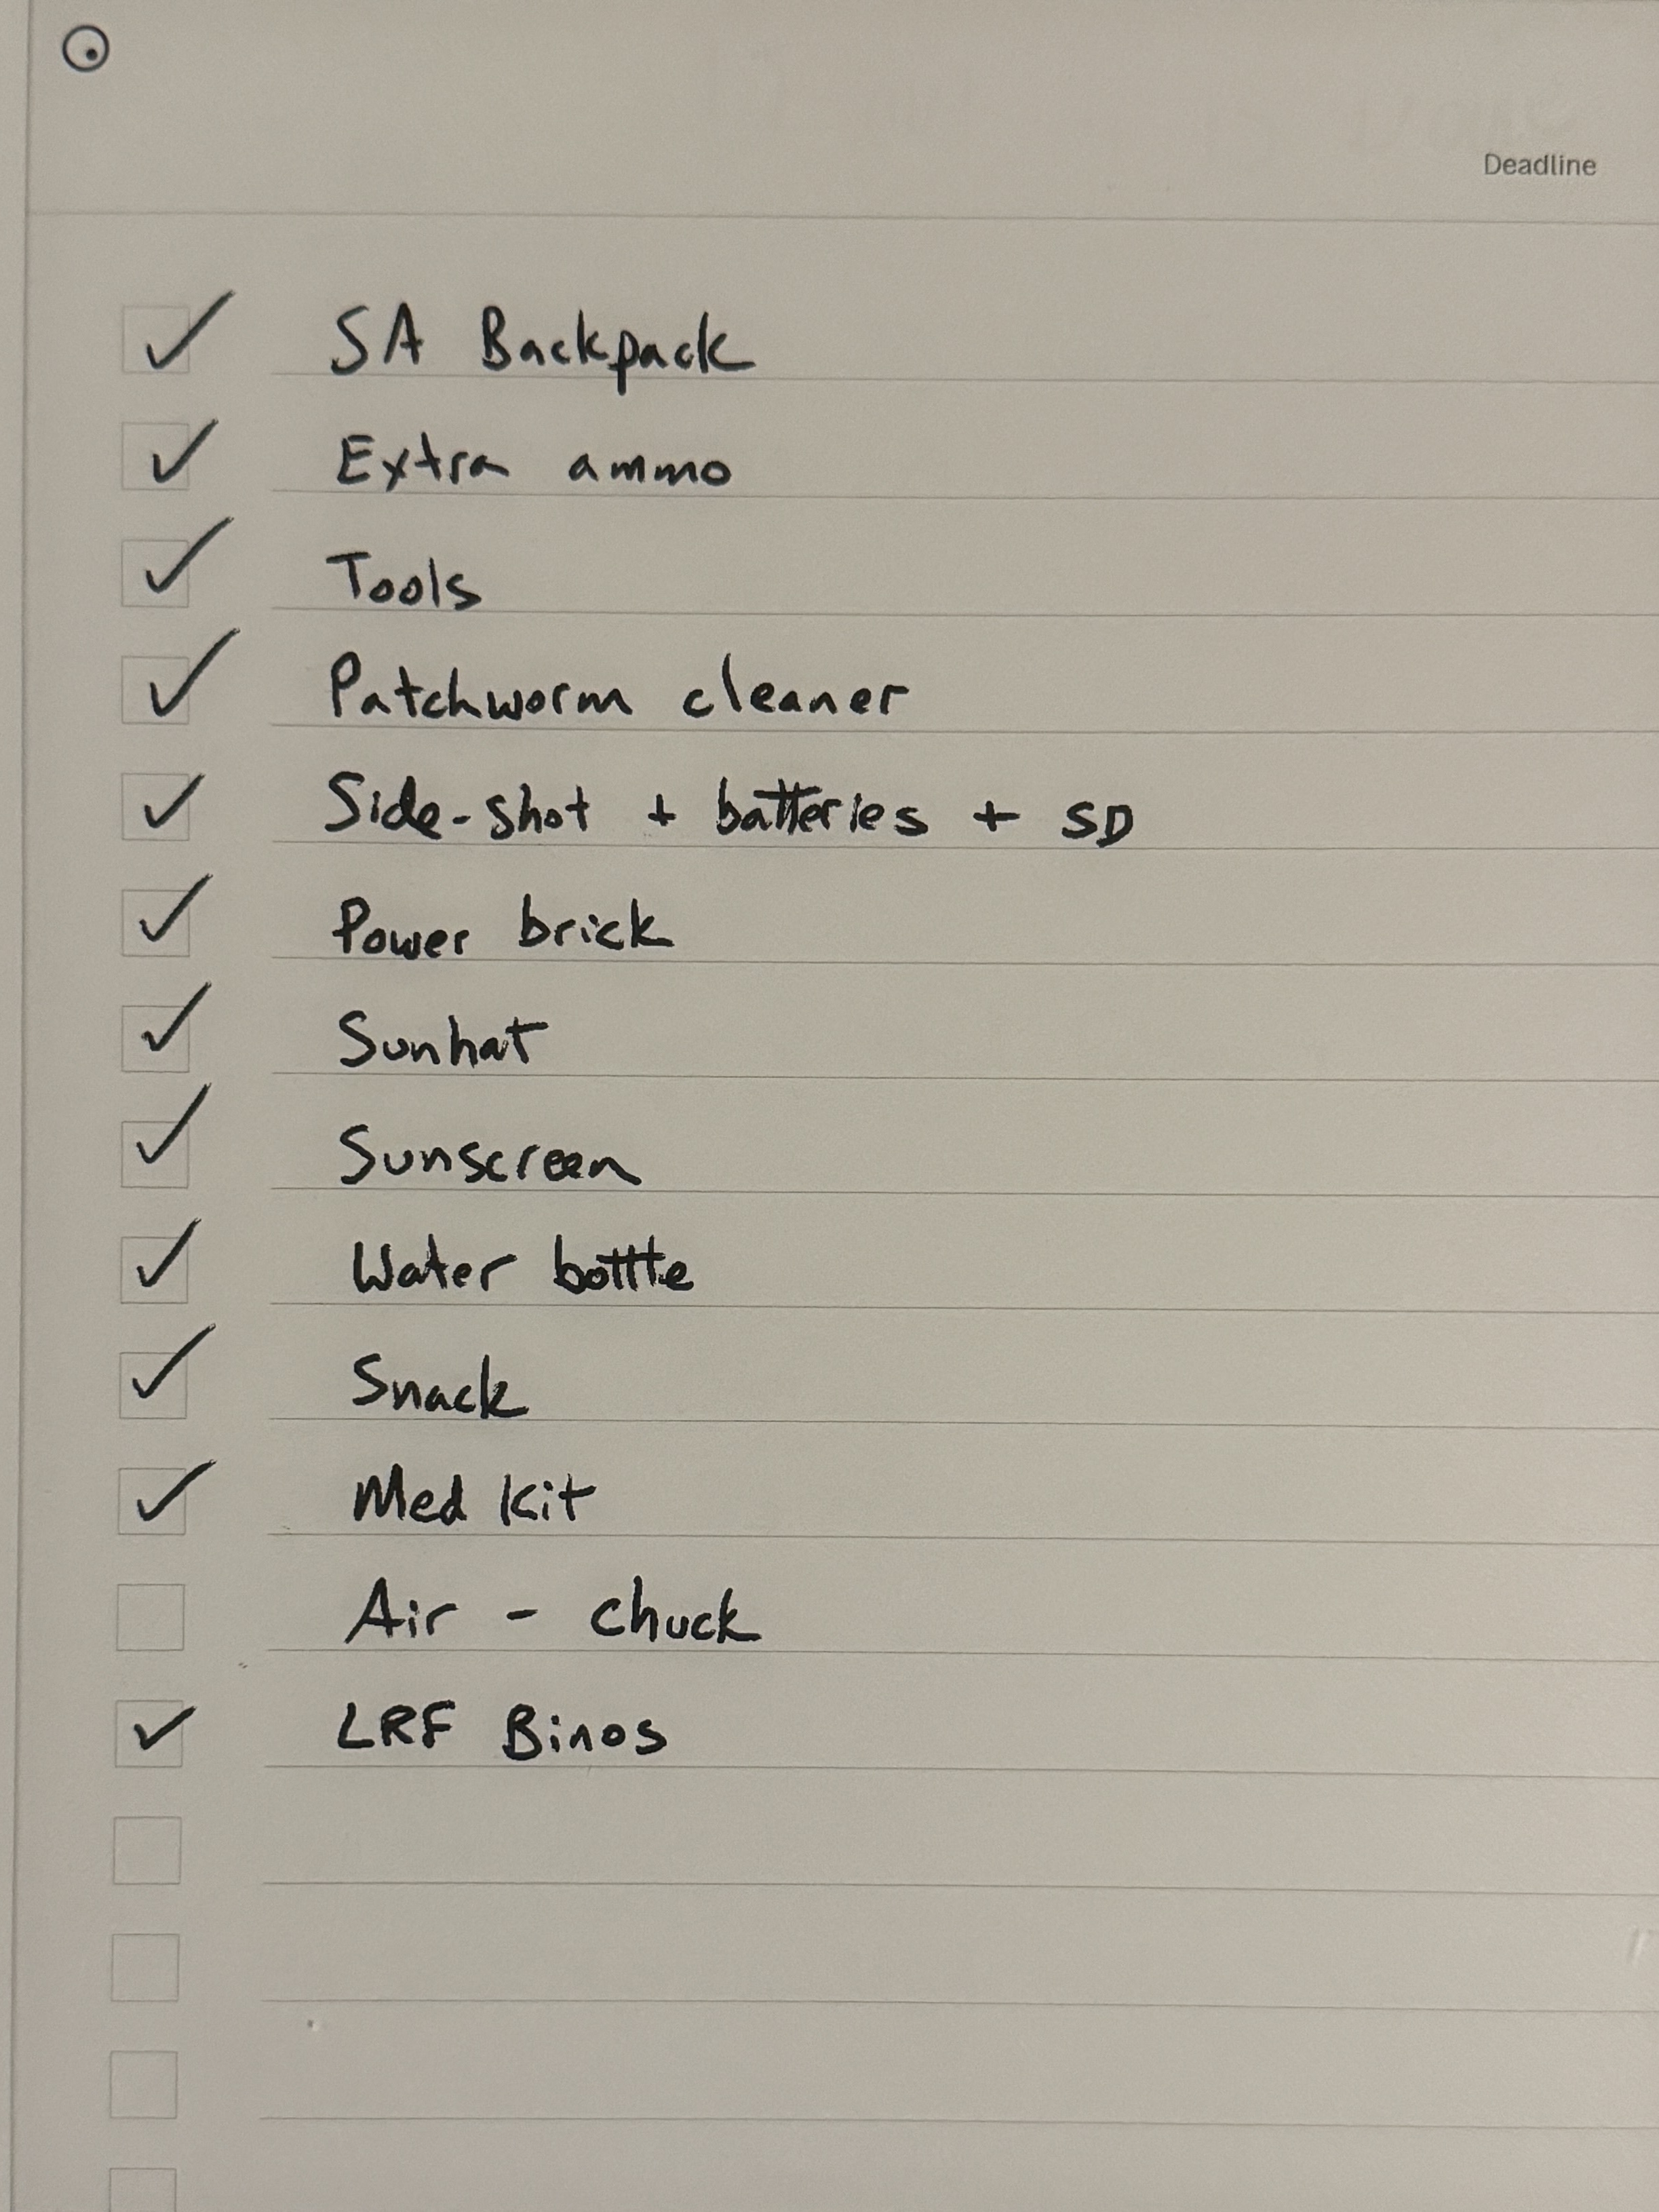 Deadline
SA Backpack
Extra ammo
Tools
Patchworm cleaner
Side-shot + batteries + SD
Power brick
Sunhat
Sunscreen
Water bottle
Snack
Med kit
Air - chuck
LRF Binos